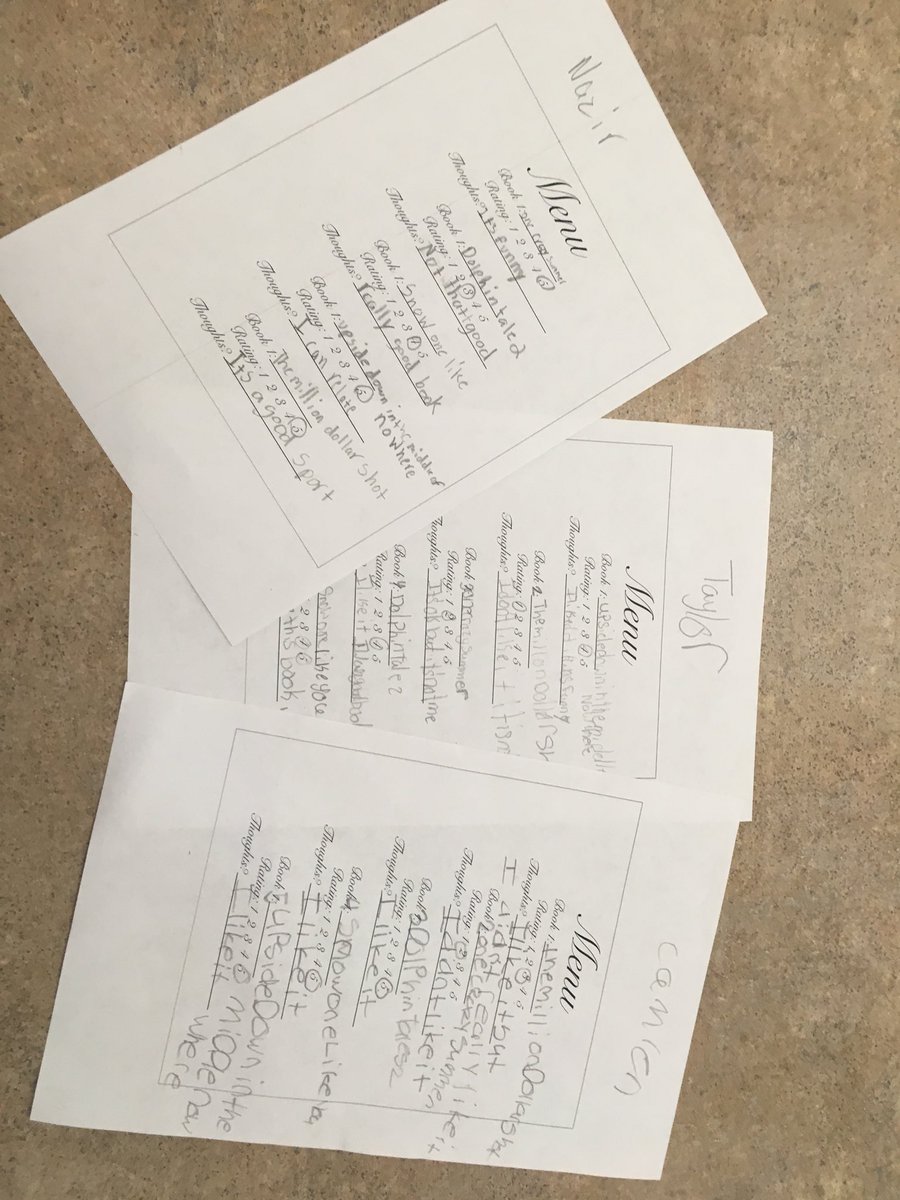 Nazir
Menu
Book 1: one crazy summer
Rating: 1 2 3 4 5
Thoughts? Its funny
Book 1: Dolphin tale 2
Rating: 1 2 3 4 5
Thoughts? Not that good
Book 1: Snow one like
Rating: 1 2 3 4 5
Thoughts? really good book
Book 1: upside down in the middle of
nowhere
Rating: 1 2 3 4 5
Thoughts? I can relate
Book 1: The million dollar shot
Rating: 1 2 3 4 5
Thoughts? It's a good sport
Taylor
Menu
Book 1: upside down in the
Rating: 1 2 3 4 5
Thoughts?
Book 2 The million
Rating: 1 2 3 4 5
Thoughts?
Book summer
Rating: 1 2 3 4 5
Thoughts?
Book 4 Dolphin tale 2
Rating: 1 2 3 4 5
like it
like you
2 3 4 5
this book.
Camren
Menu
Book 1: The million Dollar shot
Rating: 1 2 3 4 5
Thoughts? I like it but
I didnt really like it
Book one crazy summer
Rating: 1 2 3 4 5
Thoughts? I didnt like it
Book 3 Dolphin tale 2
Rating: 1 2 3 4 5
Thoughts? I like it
Book 4 Snow one Like You
Rating: 1 2 3 4 5
Thoughts? I like it
Book 5 UPside Down in the
Rating: 1 2 3 4 5
Thoughts? I like it